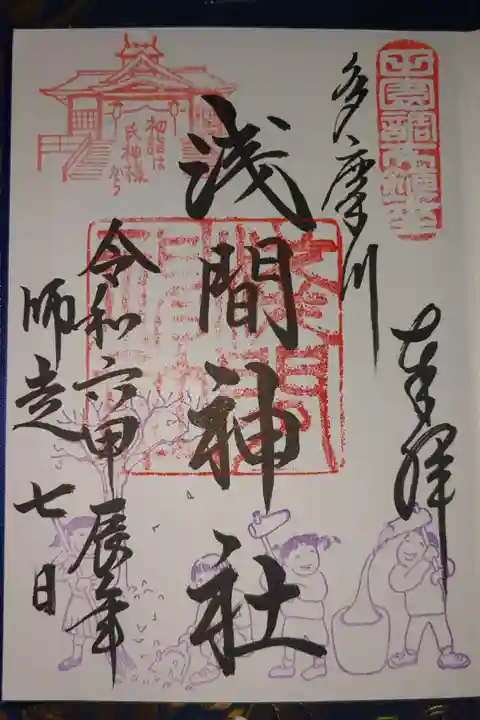 奉拝
多摩川
浅間神社
初詣は
氏神様
から
令和六甲辰年
師走七日